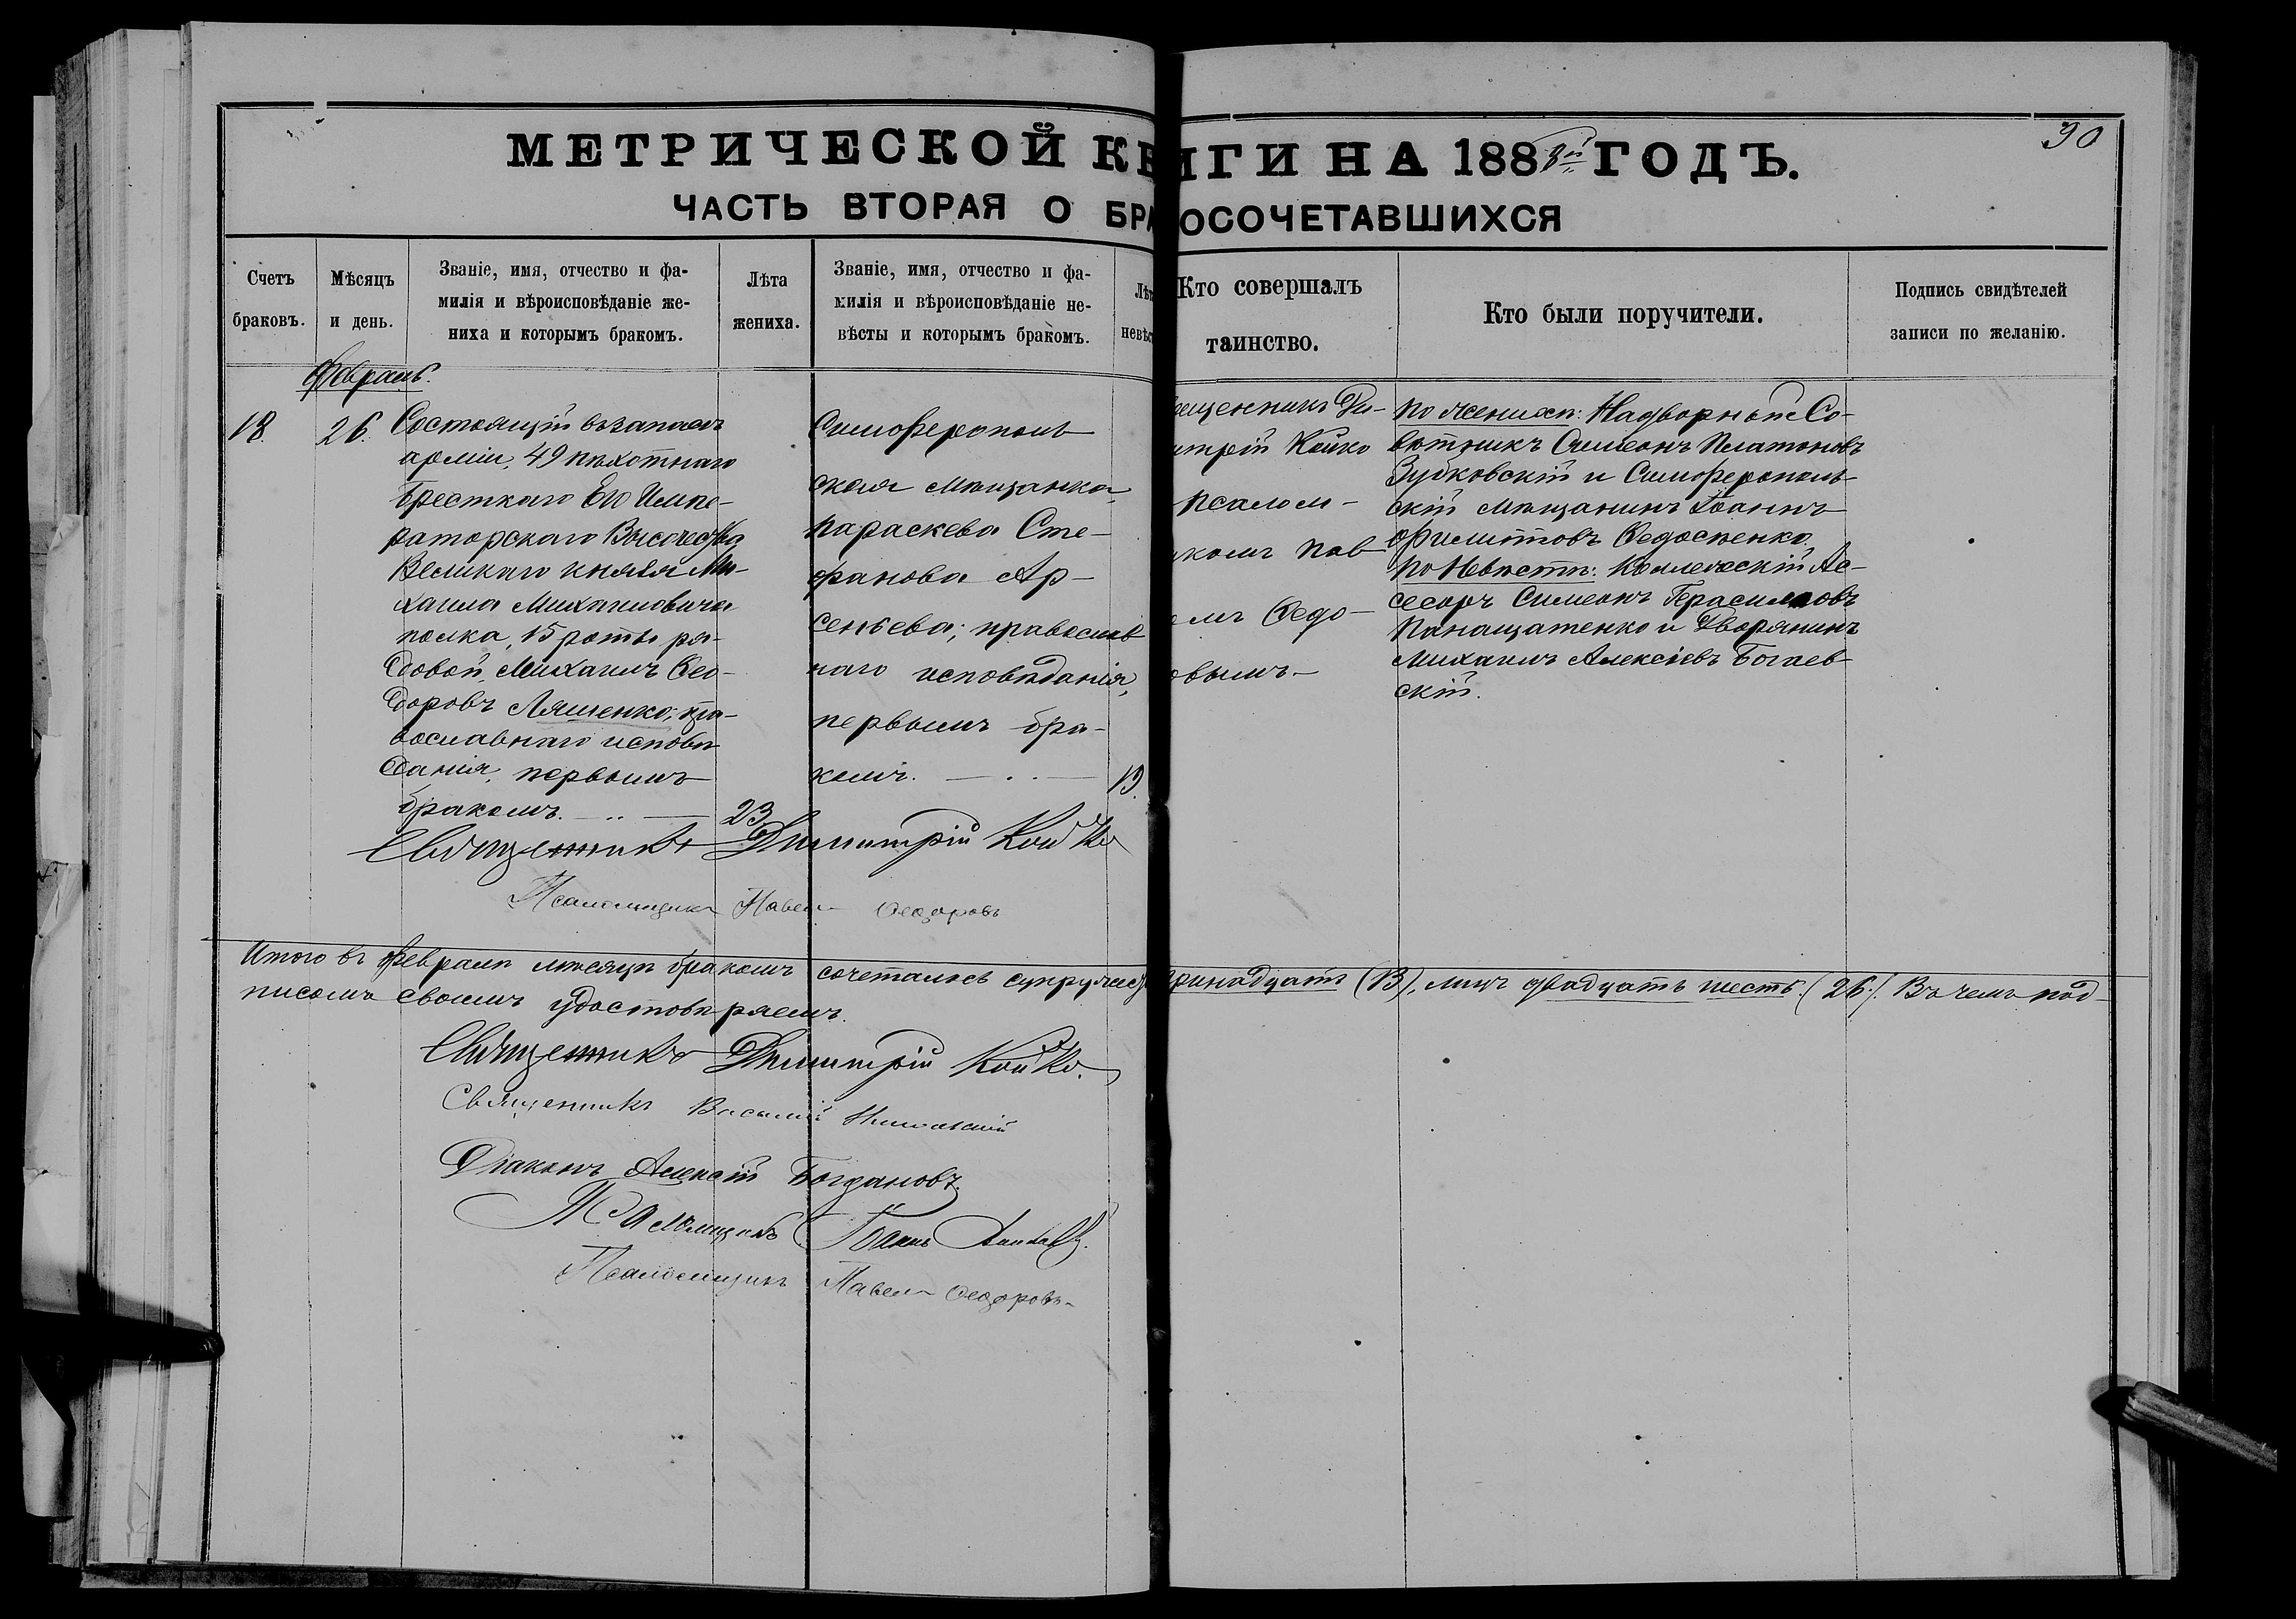 90
МЕТРИЧЕСКОЙ КНИГИ НА 1888й ГОДЪ.
ЧАСТЬ ВТОРАЯ О БРАКОСОЧЕТАВШИХСЯ
Счетъ
браковъ.
Мѣсяцъ
и день.
Званіе, имя, отчество и фа-
милія и вѣроисповѣданіе же-
ниха и которымъ бракомъ.
Лѣта
жениха.
Званіе, имя, отчество и фа-
милія и вѣроисповѣданіе не-
вѣсты и которымъ бракомъ.
Лѣт
невѣс
Кто совершалъ
таинство.
Кто были поручители.
Подпись свидѣтелей
записи по желанію.
Февраль.
18.
26.
Состоящій въ запасѣ
арміи, 49 пѣхотнаго
Брестскаго Его Импе-
раторскаго Высочества
Великаго князя Ми-
хаила Михаиловича
полка, 15 роты ря-
довой, Михаилъ Ѳео-
доровъ Ляшенко, пра-
вославнаго исповѣ-
данія, первымъ
бракомъ.
23.
Симферополь-
ская мѣщанка
Параскева Сте-
фанова Ар-
сеньева; православ
наго исповѣданія,
первымъ бра-
комъ.
19.
щенникъ Ди-
митрій Койко
псалом-
комъ Пав-
омъ Ѳедо-
овымъ
По женихѣ: Надворный Со-
вѣтникъ Симеонъ Платоновъ
Зубковскій и Симферополь-
скій мѣщанинъ Іоаннъ
Филипповъ Ѳедосѣенко.
По невѣстѣ: Коллежскій Ас-
сесоръ Симеонъ Герасимовъ
Панащатенко и Дворянинъ
Михаилъ Алексіевъ Богаев-
скій.
Священникъ Димитрій Койко
Псаломщикъ Павелъ Ѳедоровъ
Итого въ Февралѣ мѣсяцѣ бракомъ сочетались супружес тринадцать (13), лицъ двадцать шесть (26). Въ чемъ под-
писомъ своимъ удостовѣряемъ.
Священникъ Димитрій Койко.
Священникъ Василій
Діаконъ Алексій Богдановъ.
Псаломщикъ Іоаннъ
Псаломщикъ Павелъ Ѳедоровъ